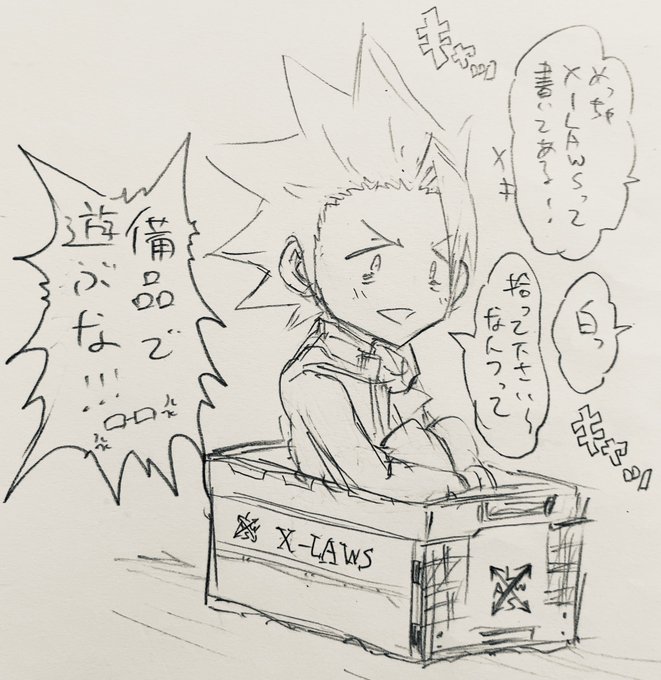 めっちゃ
X-LAWSって
書いてある!
キャッ
白っ
拾って下さい〜
なんつって
キャッ
備品で
遊ぶな!!!
X-LAWS